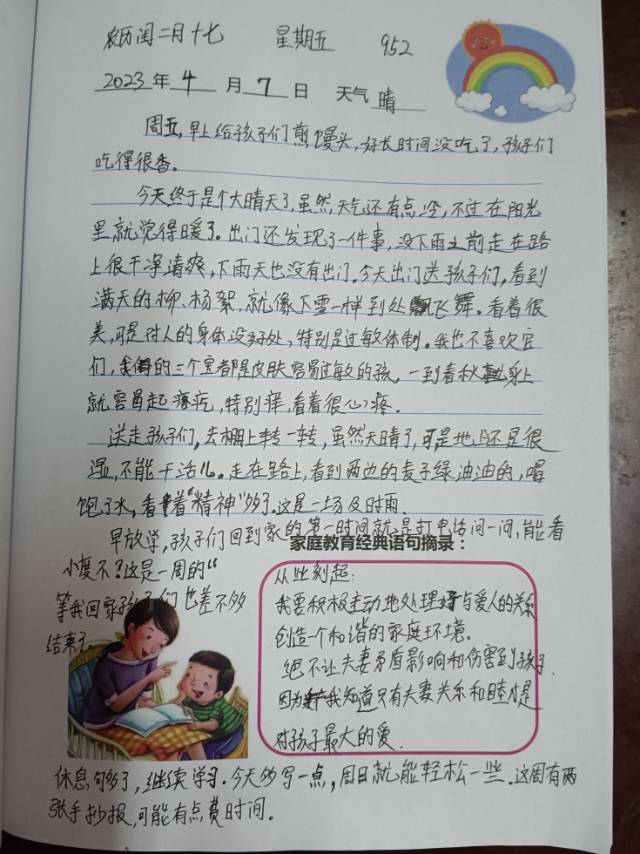 农历闰二月十七 星期五 952
2023年4月7日 天气晴
周五,早上给孩子们煎馒头,好长时间没吃了,孩子们
吃得很香。
今天终于是个大晴天了,虽然天气还有点冷,不过在阳光
里就觉得暖了。出门还发现了一件事,没下雨之前走在路
上很干净清爽,下雨天也没有出门。今天出门送孩子们,看到
满天的柳、杨絮,就像下雪一样到处飞舞。看着很
美,可是对人的身体没好处,特别是过敏体制。我也不喜欢它
们,我的三个宝都是皮肤容易过敏的孩。一到春秋身上
就容易起疙疙,特别痒,看着很心疼。
送走孩子们,去棚上转一转,虽然天晴了,可是地上还是很
湿,不能干活儿。走在路上,看到两边的麦子绿油油的,喝
饱了水,看着“精神”多了。这是一场及时雨。
早放学,孩子们回到家的第一时间就是打电话问一问,能看
家庭教育经典语句摘录:
小度不?这是一周的“
等我回家孩子们也差不多
结束了。
从此刻起:
我要积极主动地处理好与爱人的关系
创造一个和谐的家庭环境。
绝不让夫妻矛盾影响和伤害到孩子.
因为我知道只有夫妻关系和睦才是
对孩子最大的爱.
休息够了,继续学习。今天多写一点,周日就能轻松一些。这周有两
张手抄报,可能有点费时间。